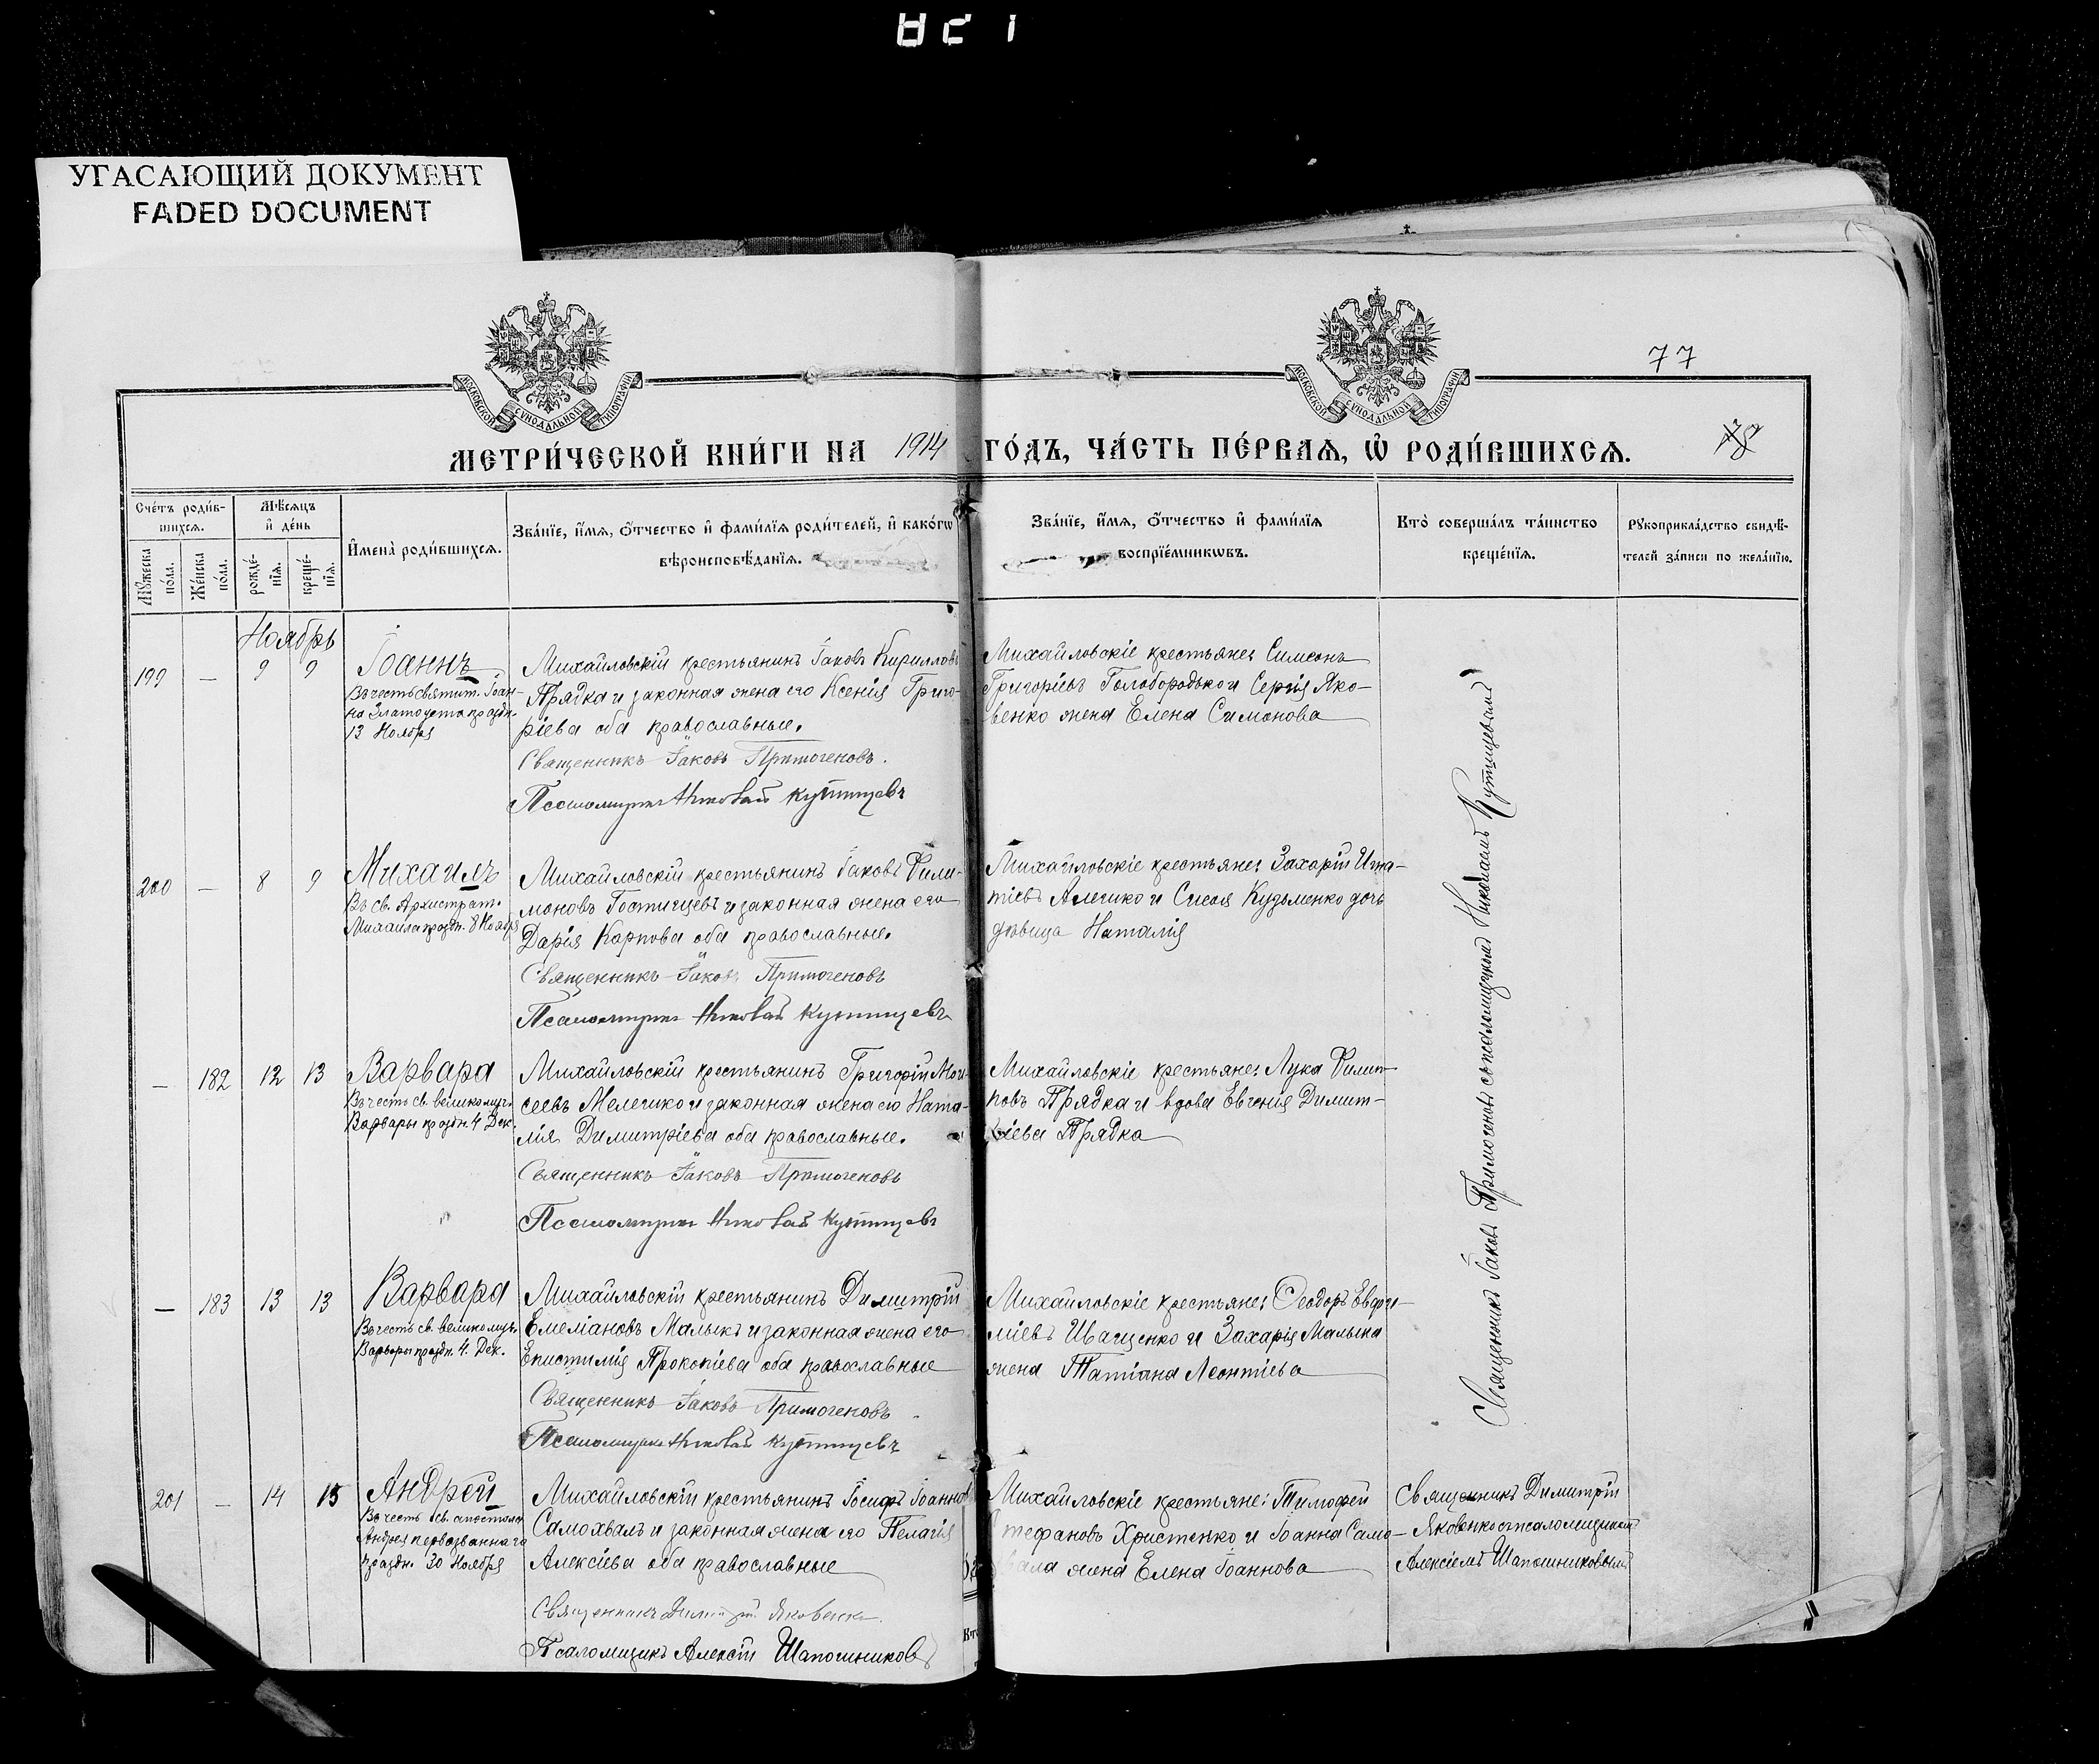 УГАСАЮЩИЙ ДОКУМЕНТ
FADED DOCUMENT
77
МОСКОВСКОЙ СѴНОДАЛЬНОЙ ТИПОГРАФІИ
МОСКОВСКОЙ СѴНОДАЛЬНОЙ ТИПОГРАФІИ
МЕТРИ́ЧЕСКОЙ КНИ́ГИ НА 1914 ГО́ДЪ, ЧА́СТЬ ПЕ́РВАѦ, Ѡ҆ РОДИ́ВШИХСѦ.
Сче́тъ роди́в-
шихсѧ.
Мѣ́сѧцъ
и҆ де́нь
И҆мена̀ роди́вшихсѧ.
Зва́нїе, и҆́мѧ, о҆́тчество и҆ фами́лїѧ роди́телей, и҆ како́гѡ
вѣроисповѣ́данїѧ.
Зва́нїе, и҆́мѧ, о҆́тчество и҆ фами́лїѧ
воспрїе́мникѡвъ.
Кто̀ соверша́лъ та́инство
креще́нїѧ.
Рꙋкоприкла́дство свидѣ́-
телей за́писи по жела́нїю.
Мꙋ́жеска по́ла.
Же́нска по́ла.
рожде́-
нїѧ.
креще́-
нїѧ.
Ноябрь
199 — 9 9 Іоаннъ
Въ честь святит. Іоан-
на Златоуста праздн.
13 Ноября
Михайловскій крестьянинъ Іаковъ Кирилловъ
Прядка и законная жена его Ксенія Григо-
ріева оба православные.
Священникъ Іаковъ Примогеновъ.
Псаломщикъ Николай Купинцевъ
Михайловскіе крестьяне: Симеонъ
Григоріевъ Голобородько и Сергія Яко-
венко жена Елена Симонова
200 — 8 9 Михаилъ
Въ св. Архистрат.
Михаила праздн. 8 Ноябр
Михайловскій крестьянинъ Іаковъ Фили-
моновъ Гостищевъ и законная жена его
Дарія Карпова оба православные.
Священникъ Іаковъ Примогеновъ
Псаломщикъ Николай Купинцевъ
Михайловскіе крестьяне: Захарій Игна-
тіевъ Алешко и Сысоя Кузьменко дочь
дѣвица Наталія
— 182 12 13 Варвара
Въ честь св. великомуч.
Варвары праздн. 4 Дек.
Михайловскій крестьянинъ Григорій Мои-
сеевъ Мелешко и законная жена его Ната-
лія Димитріева оба православные.
Священникъ Іаковъ Примогеновъ
Псаломщикъ Николай Купинцевъ
Михайловскіе крестьяне: Лука Филип-
повъ Прядка и вдова Евгенія Димит-
ріева Прядка
— 183 13 13 Варвара
Въ честь св. великомуч.
Варвары праздн. 4. Дек.
Михайловскій крестьянинъ Димитрій
Емеліановъ Малыкъ и законная жена его
Епистимія Прокопіева оба православные
Священникъ Іаковъ Примогеновъ
Псаломщикъ Николай Купинцевъ
Михайловскіе крестьяне: Ѳеодоръ Евфи-
міевъ Иващенко и Захарія Малыка
жена Татіана Леонтіева
Священникъ Іаковъ Примогеновъ съ псаломщикомъ Николаемъ Купинцевымъ
201 — 14 15 Андрей
Въ честь св. апостола
Андрея первозваннаго
праздн. 30 Ноября
Михайловскій крестьянинъ Іосифъ Іоаннов
Самохвалъ и законная жена его Пелагія
Алексіева оба православные
Священникъ Димитрій Яковенко.
Псаломщикъ Алексій Шапошниковъ
Михайловскіе крестьяне: Тимофей
Стефановъ Христенко и Іоанна Само-
хвала жена Елена Іоаннова
Священникъ Димитрій
Яковенко съ псаломщикомъ
Алексіемъ Шапошниковымъ